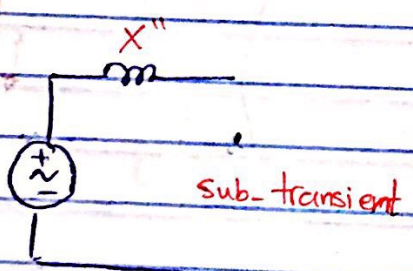 X"
+
~
-
sub-transient